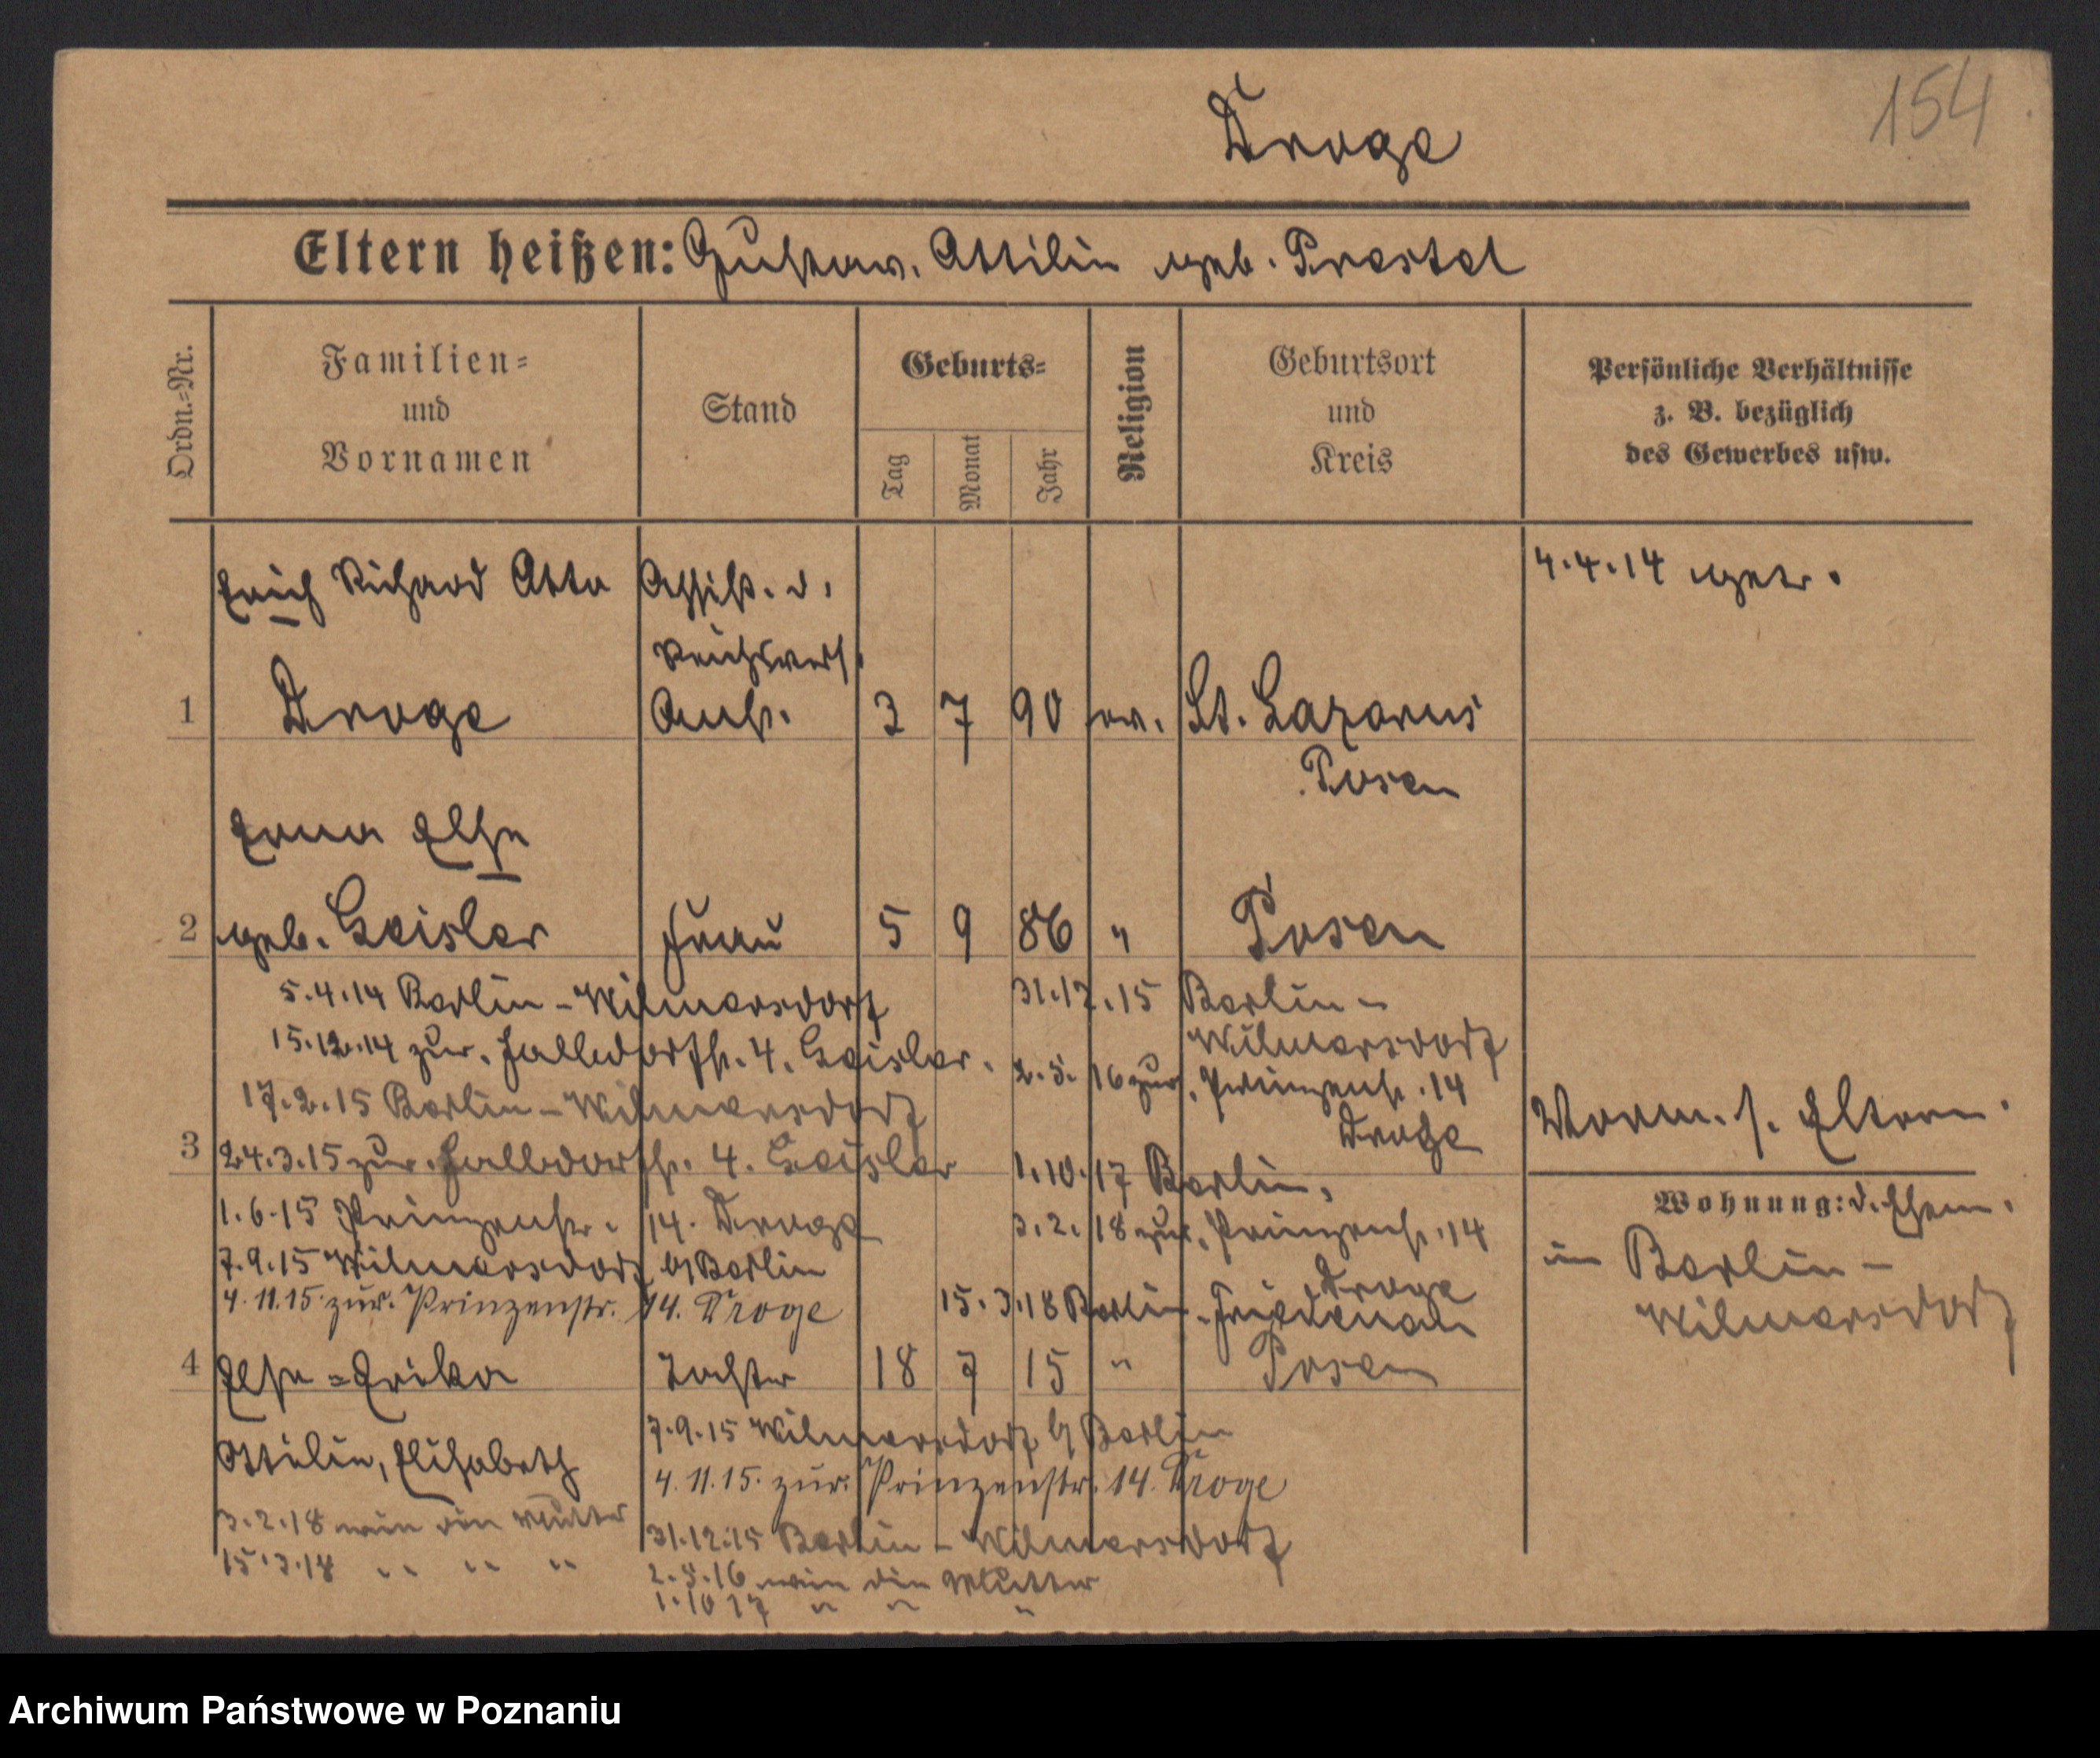 154
Droge
Eltern heißen: Gustav. Ottilie geb. Prestel
Ordn.-Nr.
Familien-
und
Vornamen
Stand
Geburts-
Tag
Monat
Jahr
Religion
Geburtsort
und
Kreis
Persönliche Verhältnisse
z. B. bezüglich
des Gewerbes usw.
Erich Richard Otto
Assist. d.
4.4.14 getr.
Reichsvers.
1 Droge Anst. 3 7 90 ev. St. Lazarus
Posen
Erna Else
2 geb. Geisler Frau 5 9 86 " Posen
5.4.14 Berlin-Wilmersdorf
15.12.14 zur. Halldorfstr. 4. Geisler.
17.2.15 Berlin-Wilmersdorf
3 24.3.15 zur. Halldorfstr. 4. Geisler
1.6.15 Prinzenstr. 14. Droge
7.9.15 Wilmersdorf b/ Berlin
4.11.15. zur. Prinzenstr. 14. Droge
31.12.15 Berlin-
Wilmersdorf
2.5.16 zur. Prinzenstr. 14
Droge
1.10.17 Berlin.
3.2.18 zur. Prinzenstr. 14
Droge
15.3.18 Berlin-Friedenau
Vorm. s. Eltern.
Wohnung: d. Ehem.
in Berlin-
Wilmersdorf
4 Else-Erika Tochter 18 7 15 " Posen
Ottilie, Elisabeth
3.2.18 wie die Mutter
15.3.18 " " "
7.9.15 Wilmersdorf b/ Berlin
4.11.15. zur. Prinzenstr. 14. Droge
31.12.15 Berlin-Wilmersdorf
2.5.16 wie die Mutter
1.10 17 " " "
Archiwum Państwowe w Poznaniu